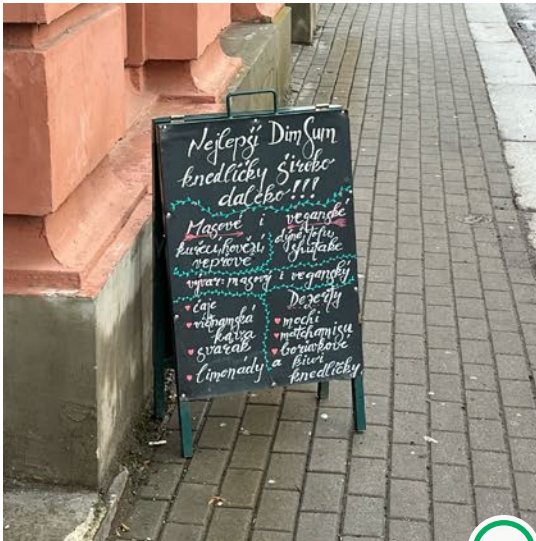 Nejlepší Dim Sum
knedlíčky široko
daleko!!!
Masové i veganské
kuřecí, hovězí,
vepřové
dýně, tofu,
shiitake
vývar: masový i veganský
čaje
vietnamská
káva
svařák
limonády
Dezerty
mochi
matchamisu
borůvkové
a kiwi
knedlíčky